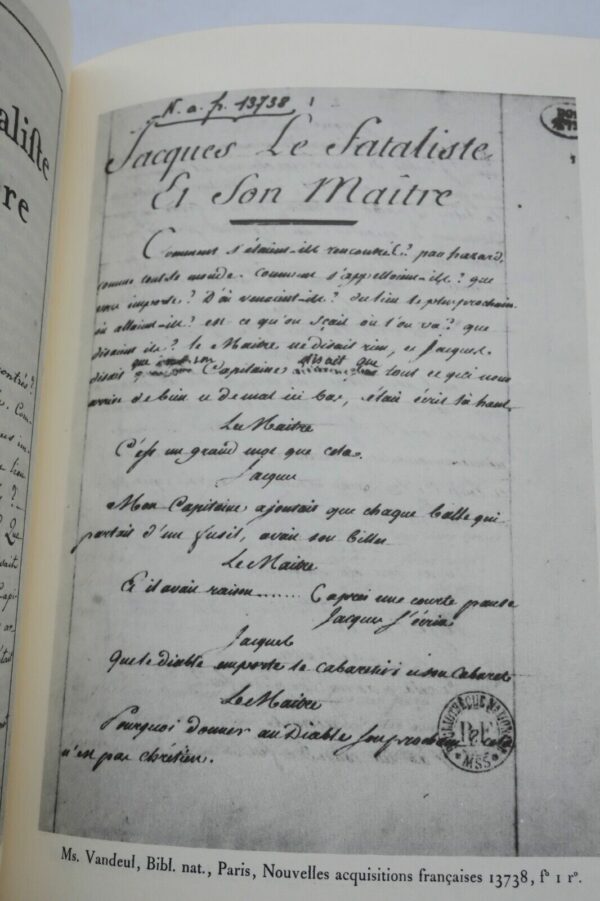 aliste
re
ontrés?
N. a. fr. 13738
Jacques Le Fataliste
Et Son Maître
Comment s'étaient-ils rencontrés? par hazard,
comme tout le monde. Comment s'appelloient-ils? que
vous importe? D'où venoient-ils? du lieu le plus prochain
où alloient-ils? est ce qu'on sçait où l'on va? que
disoient ils? le Maître ne disait rien, et Jacques
disait que son Capitaine disait que tout ce qui nous
arrive de bien et de mal ici bas, était écrit là haut.
Le Maitre
C'est un grand mot que cela.
Jacques
Mon Capitaine ajoutait que chaque balle qui
partait d'un fusil, avait son billet
Le Maitre
Et il avait raison........ Capres une courte pause
Jacques s'écria
Jacques
Que le diable emporte le cabaretier et son Cabaret
Le Maitre
Pourquoi donner au Diable son prochain
n'est pas chrétien.
BIBLIOTHEQUE NATIONALE
MSS
Ms. Vandeul, Bibl. nat., Paris, Nouvelles acquisitions françaises 13738, fº 1 rº.